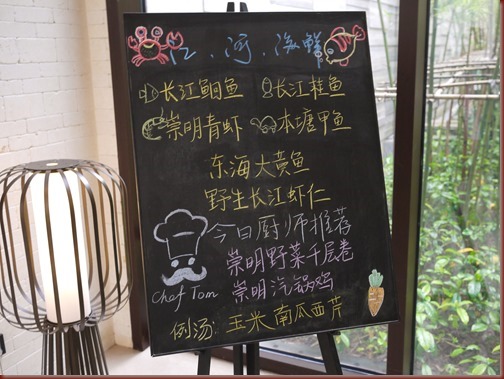 江.河.海鲜
长江鮰鱼 长江桂鱼
崇明青虾 本塘甲鱼
东海大黄鱼
野生长江虾仁
今日厨师推荐
崇明野菜千层卷
Chef Tom 崇明汽锅鸡
例汤: 玉米南瓜西芹